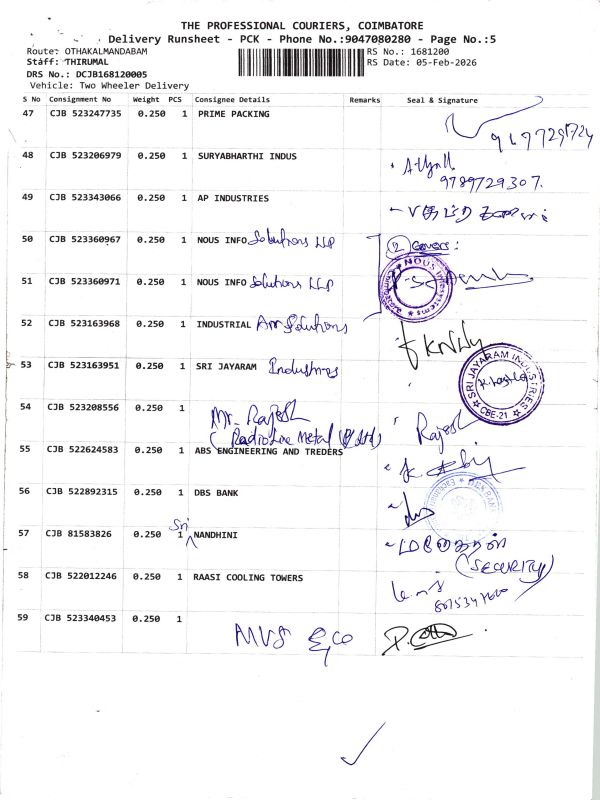 THE PROFESSIONAL COURIERS, COIMBATORE
Delivery Runsheet - PCK - Phone No.:9047080280 - Page No.:5
Route: OTHAKALMANDABAM RS No.: 1681200
Staff: THIRUMAL RS Date: 05-Feb-2026
DRS No.: DCJB168120005
Vehicle: Two Wheeler Delivery
S No Consignment No Weight PCS Consignee Details Remarks Seal & Signature
47 CJB 523247735 0.250 1 PRIME PACKING
48 CJB 523206979 0.250 1 SURYABHARTHI INDUS
9789729307.
49 CJB 523343066 0.250 1 AP INDUSTRIES
50 CJB 523360967 0.250 1 NOUS INFO Solutions LLP 2 Covers:
51 CJB 523360971 0.250 1 NOUS INFO Solutions LLP
NOUS Infosystems
52 CJB 523163968 0.250 1 INDUSTRIAL Air Solutions
53 CJB 523163951 0.250 1 SRI JAYARAM Industries
SRI JAYARAM INDUSTRIES CBE-21
54 CJB 523208556 0.250 1 Mr. Rajesh Rajesh
(Radioline Metal (P) Ltd)
55 CJB 522624583 0.250 1 ABS ENGINEERING AND TREDERS
56 CJB 522892315 0.250 1 DBS BANK
57 CJB 81583826 0.250 1 Sri NANDHINI
(SECURITY)
58 CJB 522012246 0.250 1 RAASI COOLING TOWERS
59 CJB 523340453 0.250 1 MVS & Co